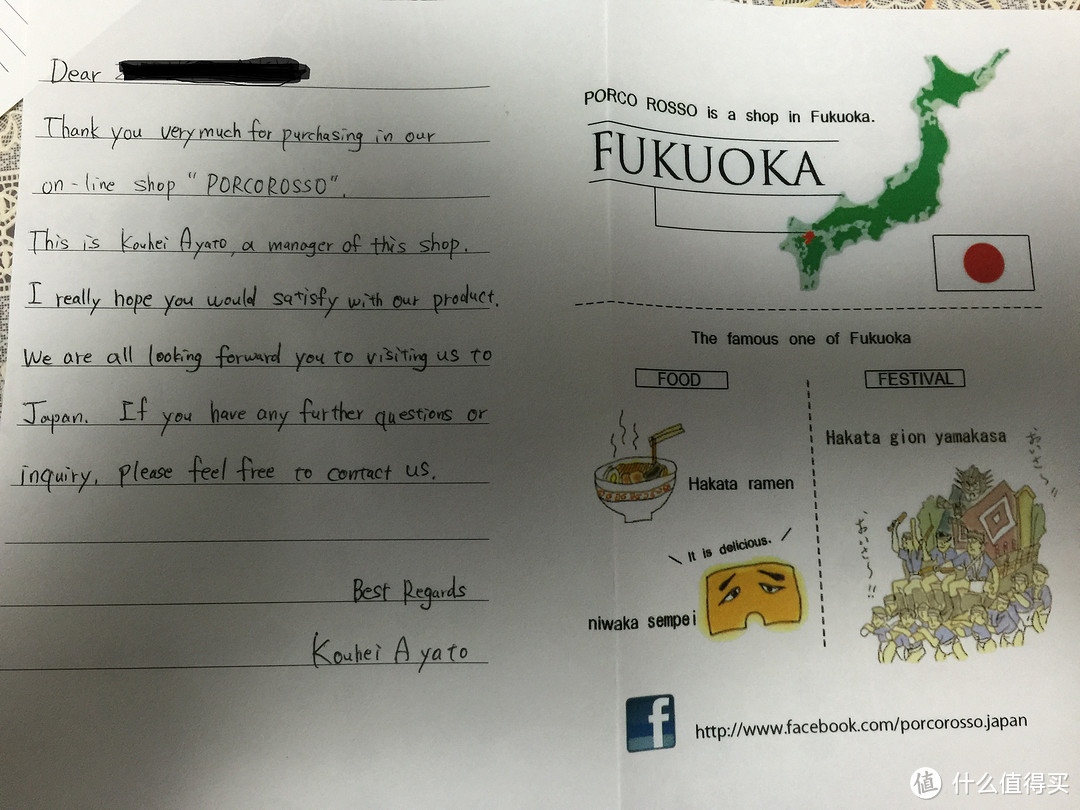 Dear
Thank you very much for purchasing in our
on-line shop "PORCOROSSO".
This is Kouhei Ayato, a manager of this shop.
I really hope you would satisfy with our product.
We are all looking forward you to visiting us to
Japan. If you have any further questions or
inquiry, please feel free to contact us.
Best Regards
Kouhei Ayato
PORCO ROSSO is a shop in Fukuoka.
FUKUOKA
The famous one of Fukuoka
FOOD
Hakata ramen
It is delicious.
niwaka sempei
FESTIVAL
Hakata gion yamakasa
おいさ〜!!
おいさ〜!!
f
http://www.facebook.com/porcorosso.japan
值 什么值得买